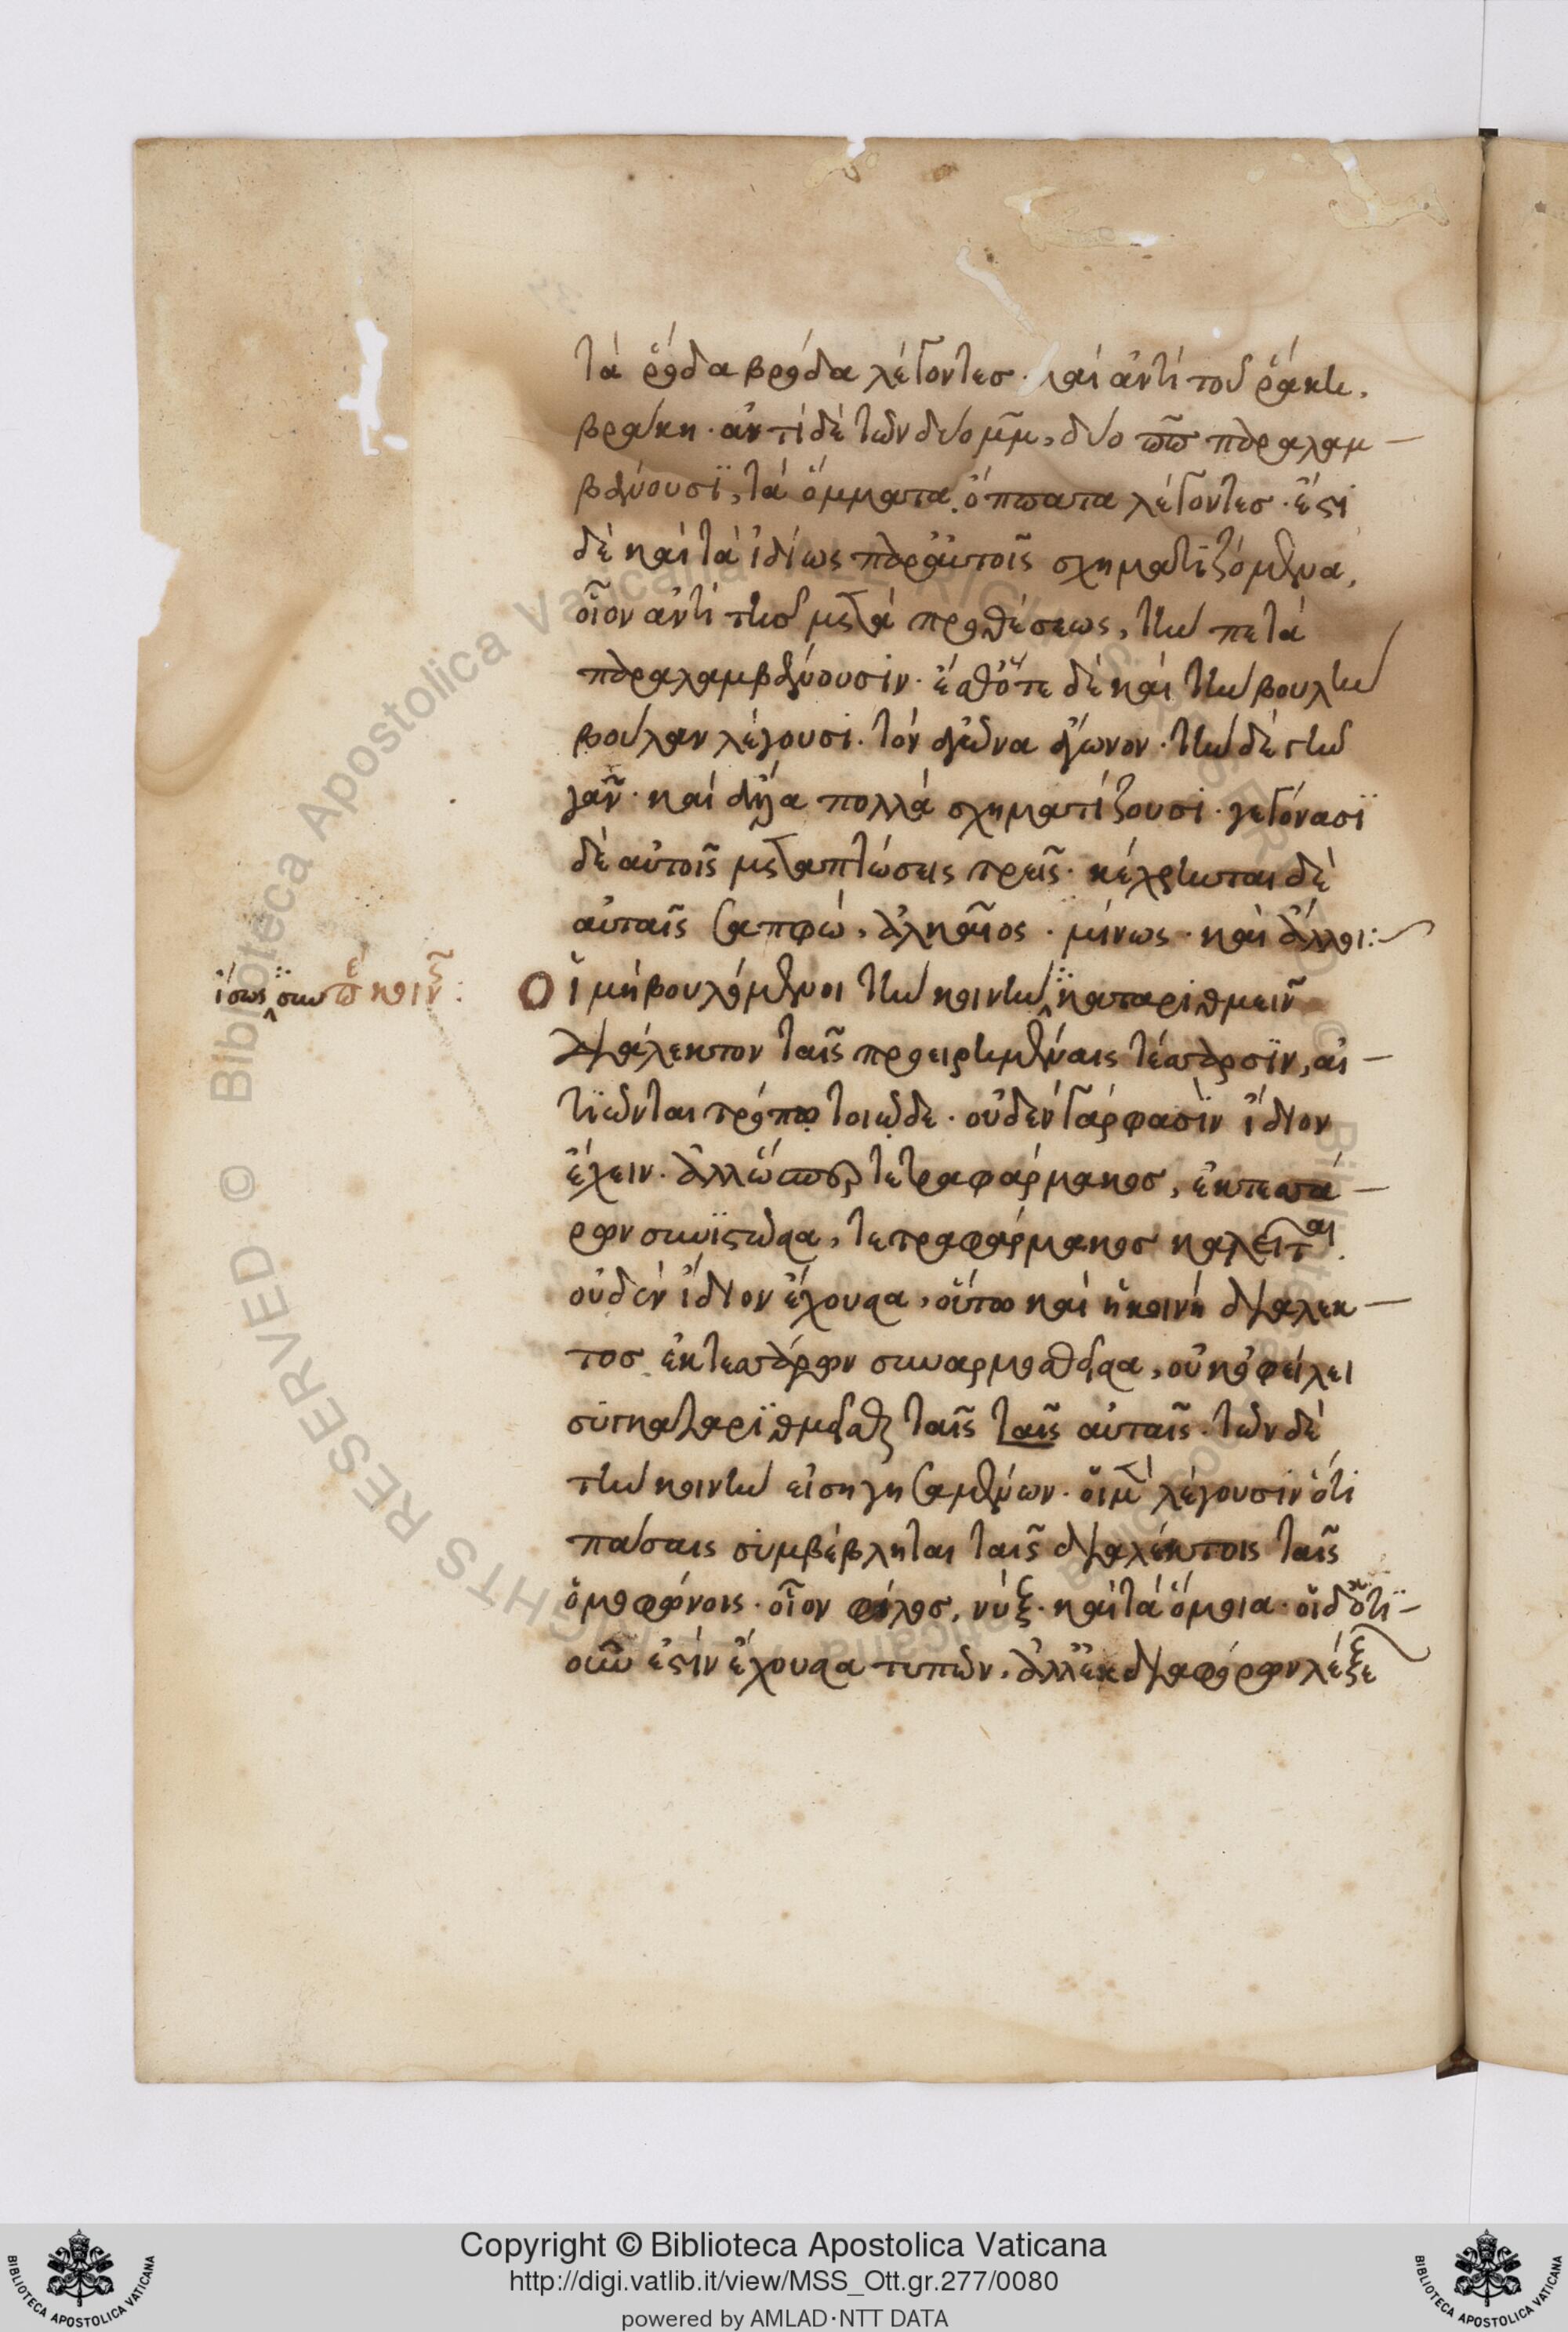 τὰ ῥόδα βρόδα λέγοντες· καὶ ἀντὶ τοῦ ῥάκη,
βράκη· ἀντὶ δὲ τῶν δύο μ̄μ, δύο π̄π̄ παραλαμ–
βάνουσϊ, τὰ ὄμματα, ὄππατα λέγοντες· ἔστι
δὲ καὶ τὰ ἰδίως παρ' αὐτοῖς σχηματιζόμενα,
οἷον ἀντὶ τῆς μετὰ προθέσεως, τὴν πετὰ
παραλαμβάνουσιν· ἔσθότε δὲ καὶ τὴν βουλὴν
βούλαν λέγουσι· τὸν ἀγῶνα ἀγώνον· τὴν δὲ γῆν
γᾶν· καὶ ἄλλα πολλὰ σχηματίζουσι· γεγόνασϊ
δὲ αὐτοῖς μεταπτώσεις τρεῖς· κέχρηται δὲ
αὐταῖς σαπφώ, ἀλκαῖος· μίνως· καὶ ἄλλοι:
ἴσως συν ε κοιν:
Οἱ μὴ βουλόμενοι τὴν κοινὴν καταριθμεῖν
διάλεκτον ταῖς προειρημέναις τέσσαρσϊν, αἰ–
τϊῶνται τρόπῳ τοιῷδε· οὐδὲν γάρ φασϊν ἴδιον
ἔχειν· ἀλλ' ὥσπερ τετραφάρμακος, ἐκ τεσσά–
ρων συνϊστῶσα, τετραφάρμακος καλεῖται
οὐδὲν ἴδιον ἔχουσα, οὕτω καὶ ἡ κοινὴ διάλεκ–
τος ἐκ τεσσάρων συναρμοσθεῖσα, οὐκ ὀφείλει
συγκαταρϊθμεῖσθαι ταῖς ταῖς αὐταῖς· τῶν δὲ
τὴν κοινὴν εἰσηγησαμένων· οἱ μὲν λέγουσιν ὅτι
πάσαις συμβέβληται ταῖς διαλέκτοις ταῖς
ὁμοφώνοις· οἷον φίλος, νύξ· καὶ τὰ ὅμοια· οἱ δ' ὅτϊ–
οὖν ἐστὶν ἔχουσα τυπῶν, ἀλλ' ἐκ διαφόρων λέξε
Copyright © Biblioteca Apostolica Vaticana
http://digi.vatlib.it/view/MSS_Ott.gr.277/0080
powered by AMLAD·NTT DATA
BIBLIOTECA APOSTOLICA VATICANA
BIBLIOTECA APOSTOLICA VATICANA